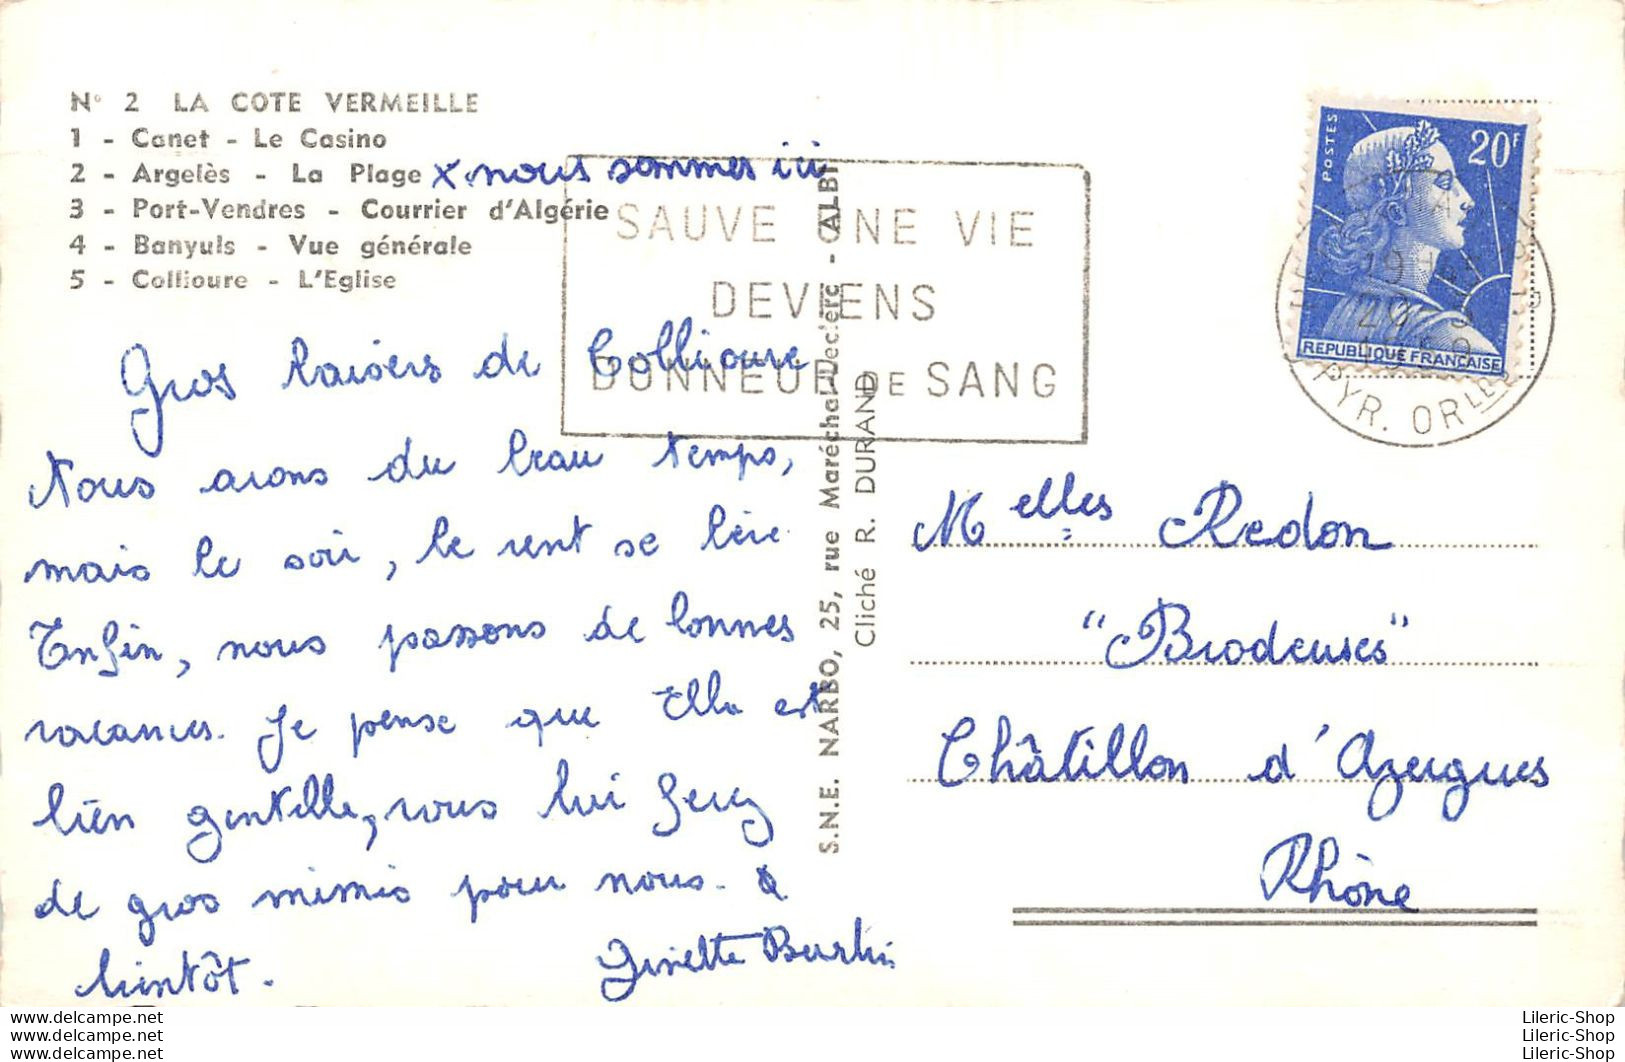 N° 2 LA COTE VERMEILLE
1 - Canet - Le Casino
2 - Argelès - La Plage x nous sommes ici
3 - Port-Vendres - Courrier d'Algérie
4 - Banyuls - Vue générale
5 - Collioure - L'Eglise
SAUVE UNE VIE
DEVIENS
DONNEUR DE SANG
POSTES
20F
REPUBLIQUE FRANÇAISE
19 H
PYR. ORLES
Gros baisers de Collioure
Nous avons du beau temps,
mais le soir, le vent se lève
Enfin, nous passons de bonnes
vacances. Je pense que Ella est
bien gentille, vous lui ferez
de gros mimis pour nous. A
bientôt.
Ginette
S.N.E. NARBO, 25, rue Maréchal-Leclerc - ALBI
Cliché R. DURAND
Melles Redon
"Brodeuses"
Châtillon d'Azergues
Rhône
Lileric-Shop
Lileric-Shop
Lileric-Shop
www.delcampe.net
www.delcampe.net
www.delcampe.net